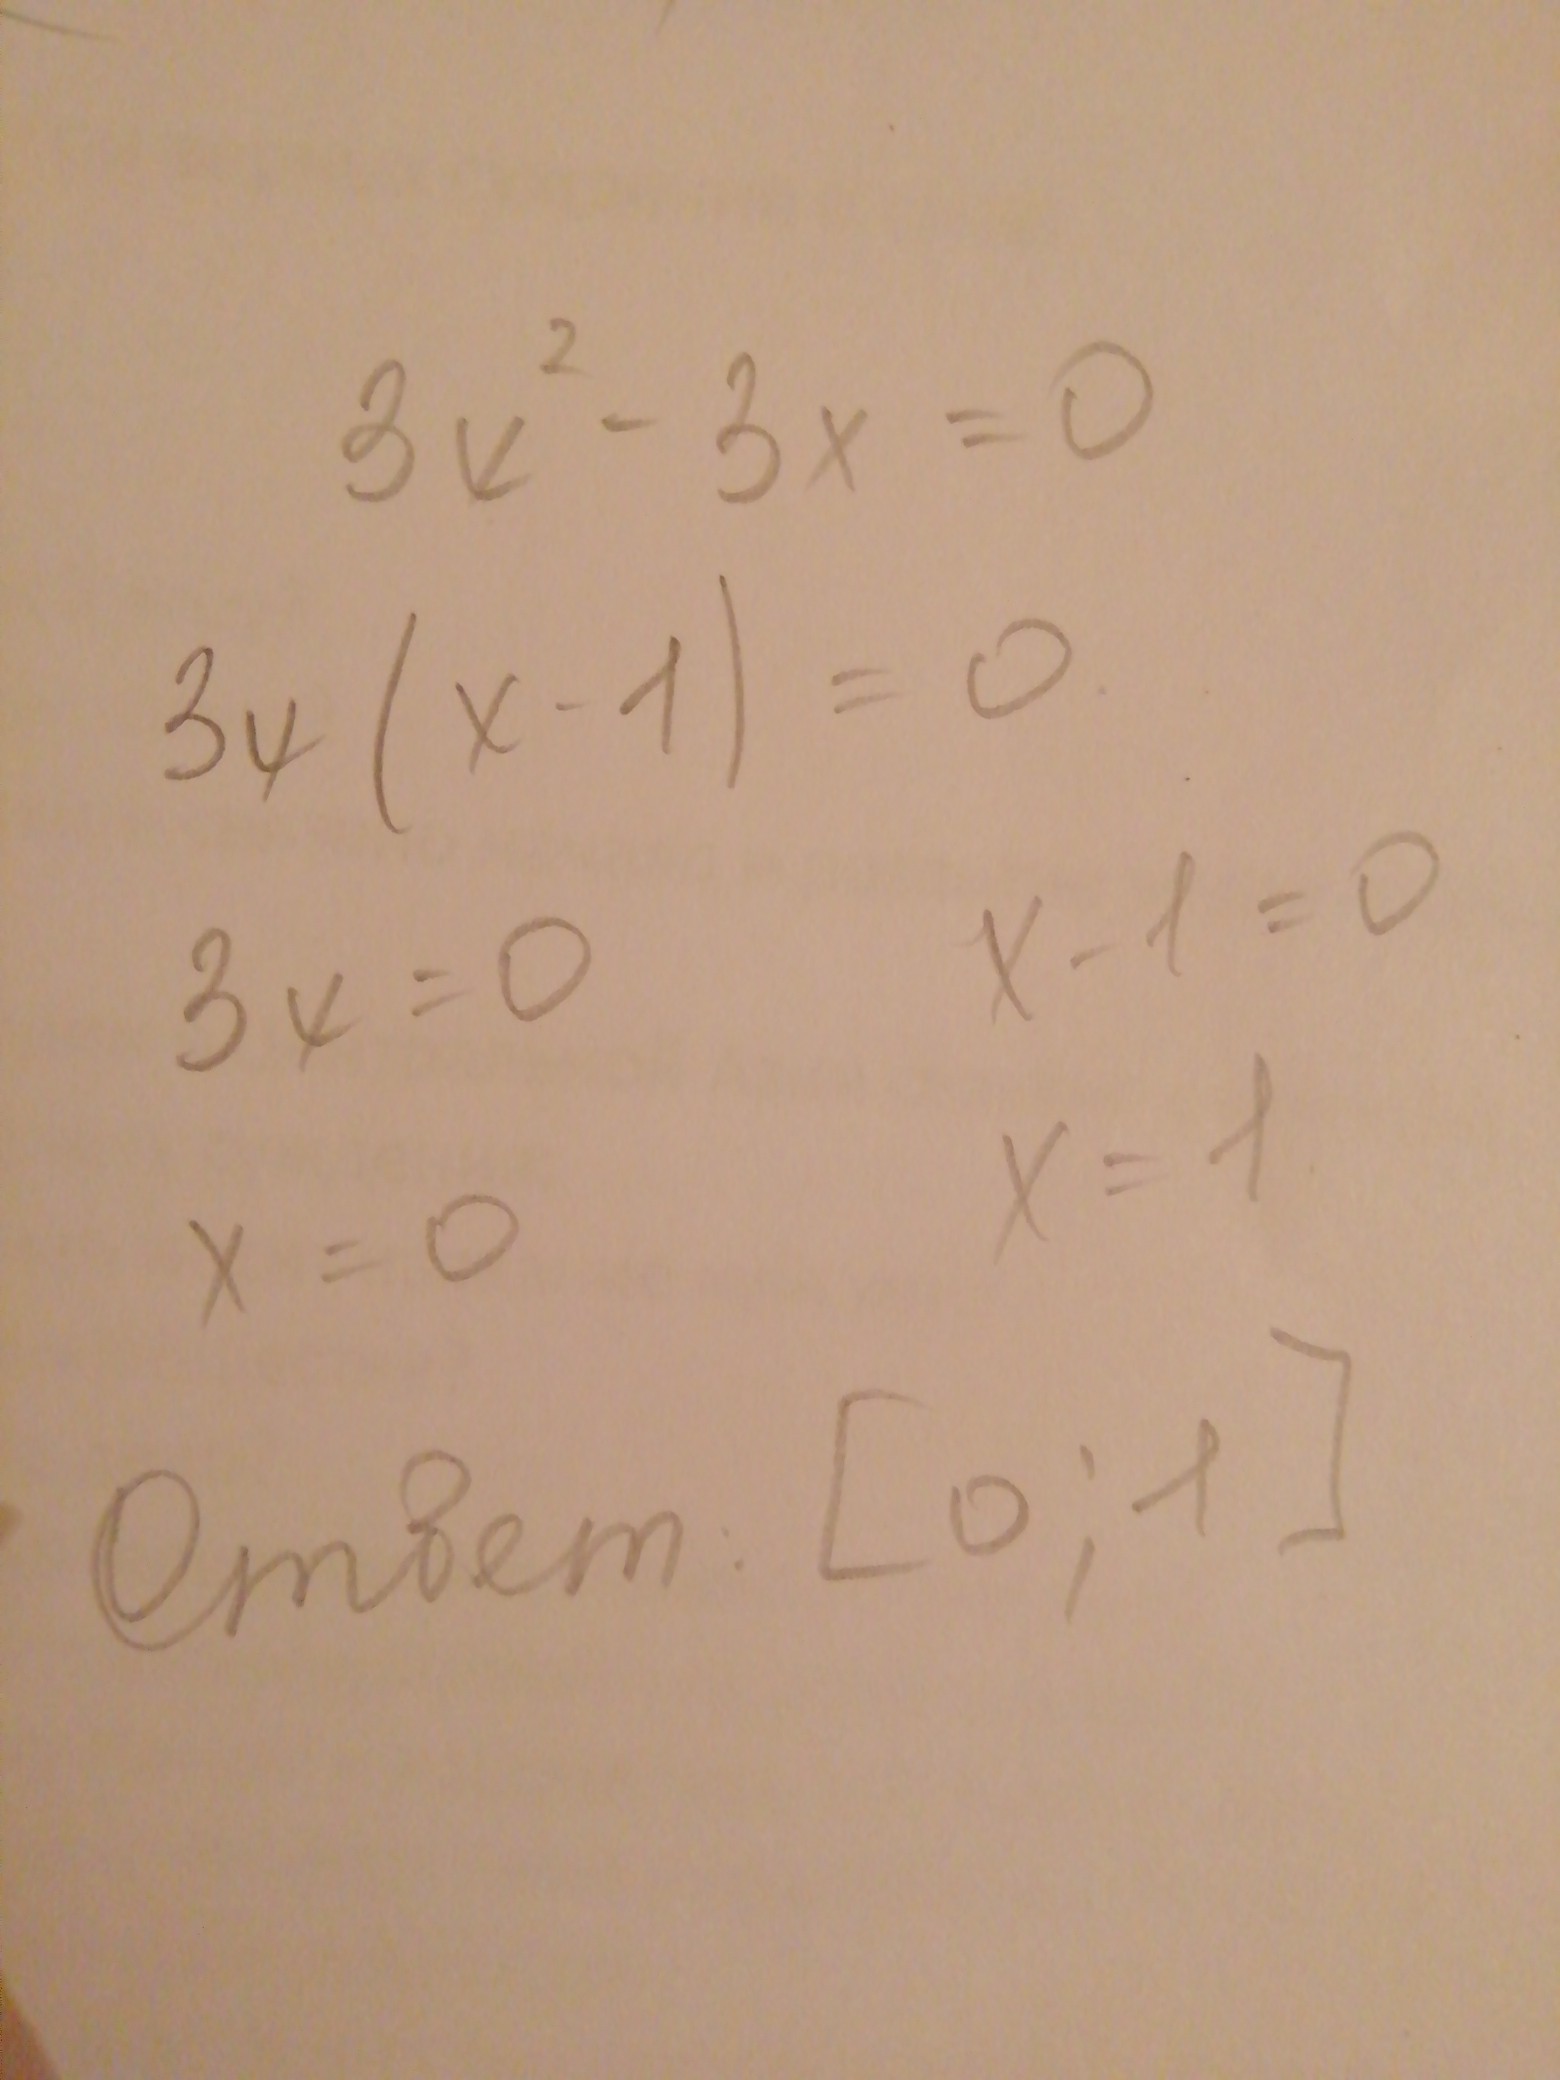 3x² - 3x = 0
3x (x - 1) = 0.
3x = 0 x - 1 = 0
x = 0 x = 1
Ответ: [0; 1]